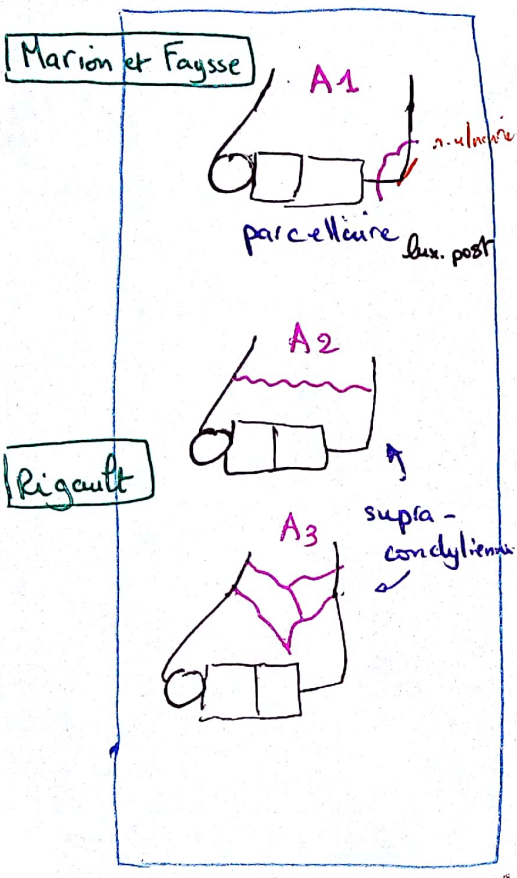 Marion et Faysse
A1
n. ulnaire
parcellaire
lux. post
A2
Rigault
supra-
condylienne
A3